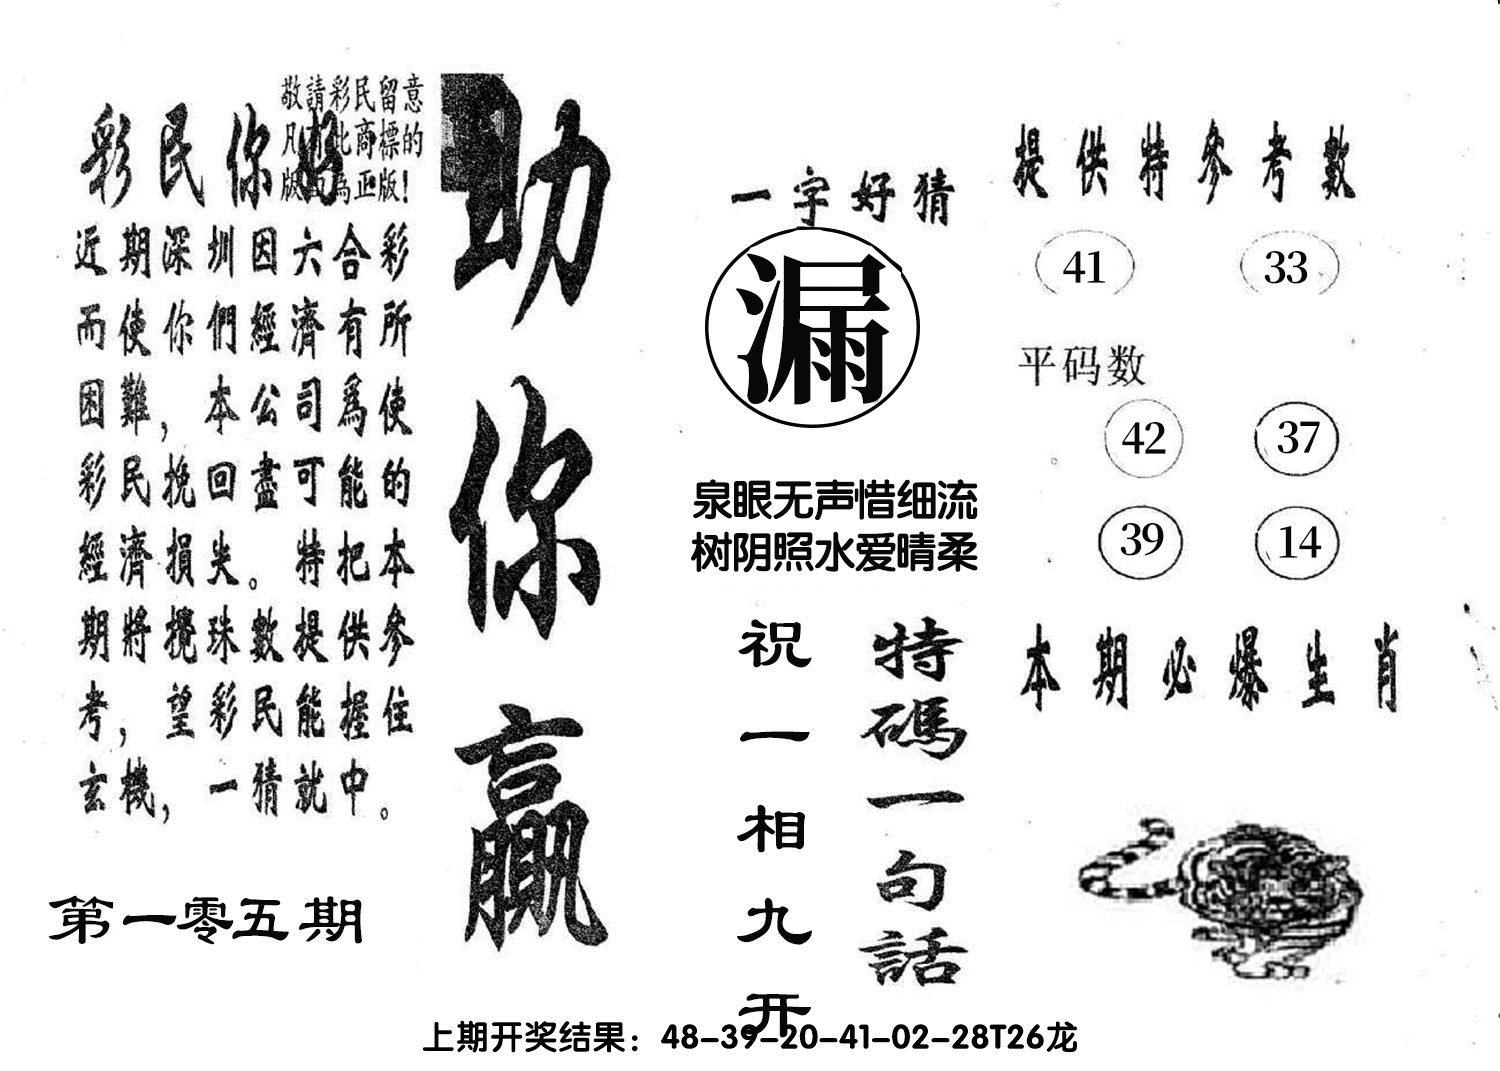 敬請彩民留意
凡有此商標的
版面為正版!
彩民你好
近期深圳因六合彩
而使你們經濟有所
困難，本公司爲使
彩民挽回盡可能的
經濟損失。特把本
期將攪珠數提供參
考，望彩民能握住
玄機，一猜就中。
第一零五期
助你贏
一字好猜
漏
泉眼无声惜细流
树阴照水爱晴柔
特碼一句話
祝一相九开
提供特參考數
41 33
平码数
42 37
39 14
本期必爆生肖
上期开奖结果：48-39-20-41-02-28T26龙